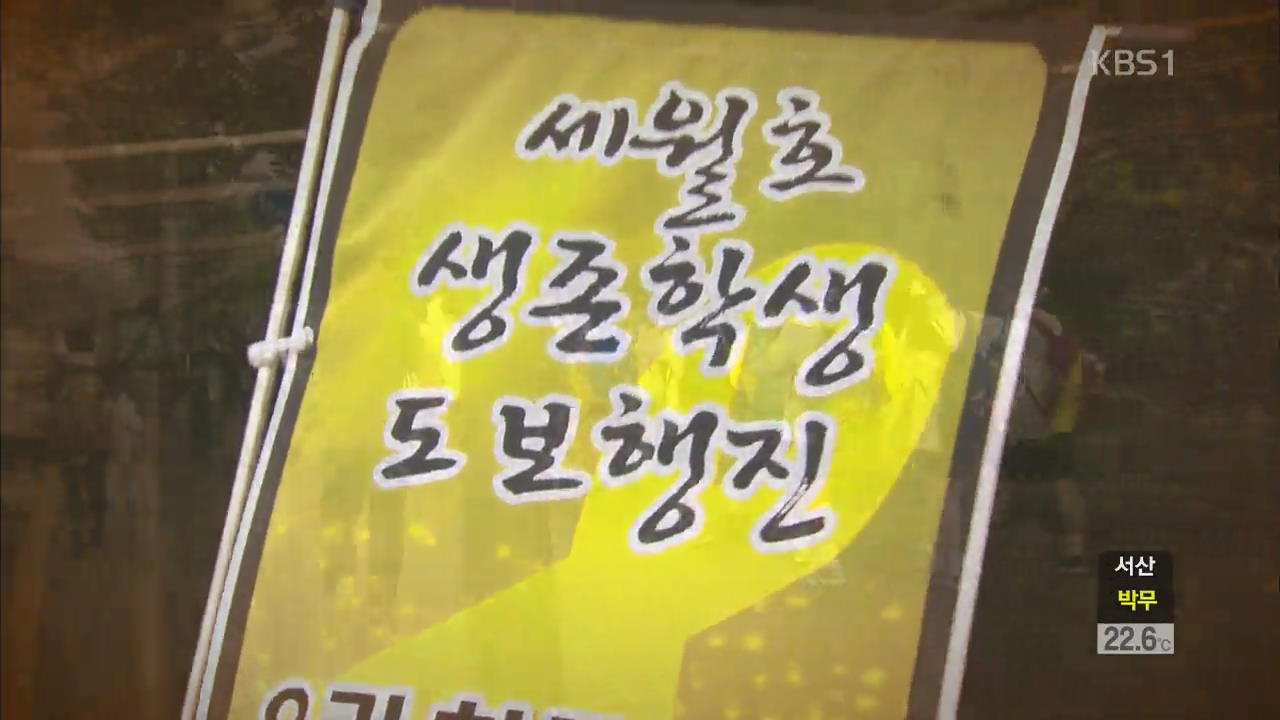 KBS1
세월호
생존학생
도보행진
서산
박무
22.6℃